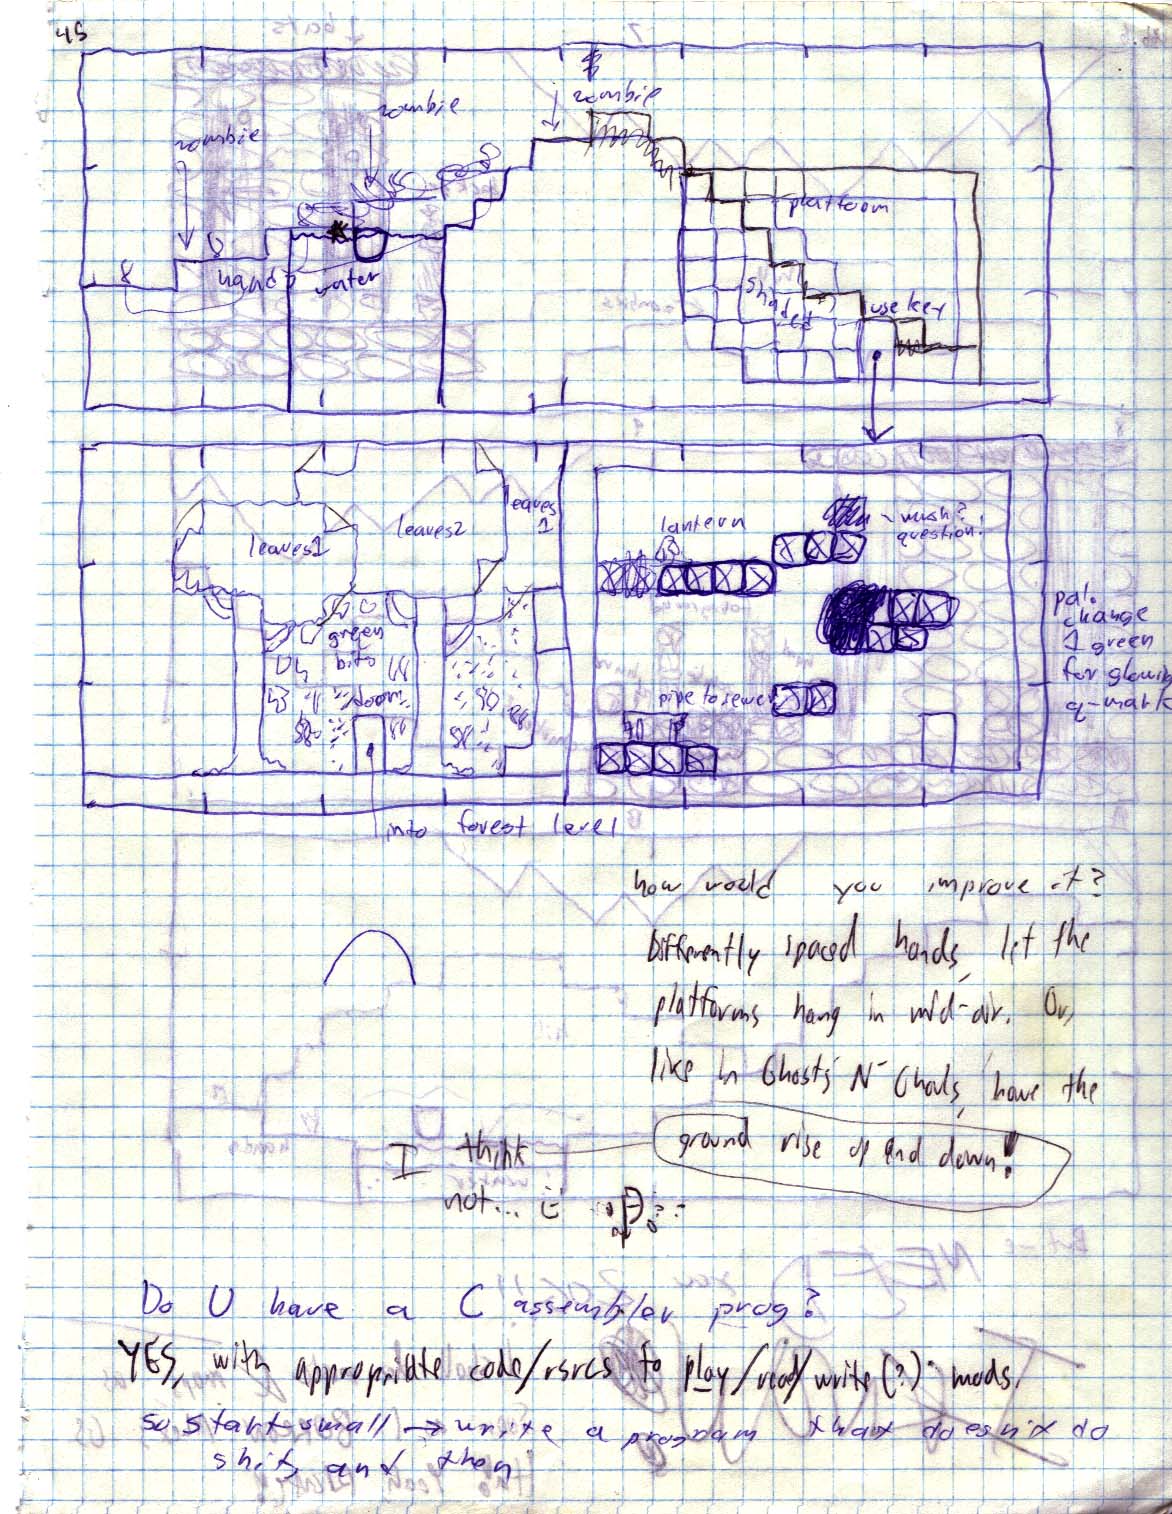 45
zombie
zombie
zombie
platform
hands
water
use key
leaves1
leaves2
leaves
1
lantern
mush?
question?
green
bits
pipe to sewer
pal.
change
1 green
for glowing
q-mark
into forest level
how would you improve it?
Differently spaced hands, let the
platforms hang in mid-air. Or,
like in Ghosts 'N' Ghouls, have the
ground rise up and down!
I think
not...
Do U have a C assembler prog?
YES, with appropriate code/rsrcs to play/read/write(?) mods.
so start small → write a program that doesn't do
shit, and then